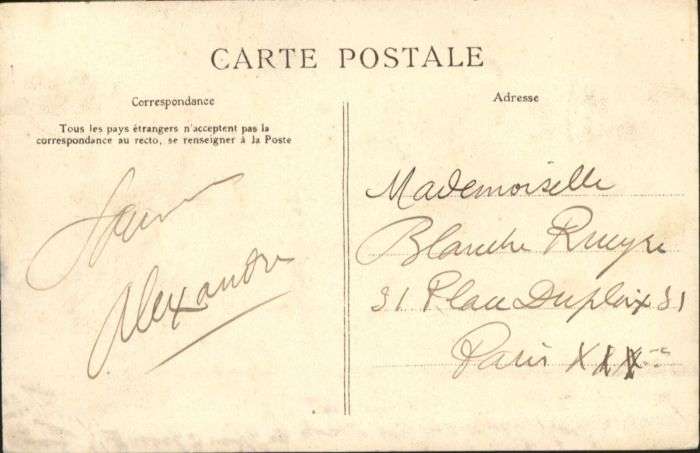 CARTE POSTALE
Correspondance
Tous les pays étrangers n'acceptent pas la
correspondance au recto, se renseigner à la Poste
Alexandre
Adresse
Mademoiselle
Blanche
31 Place Dupleix 31
Paris